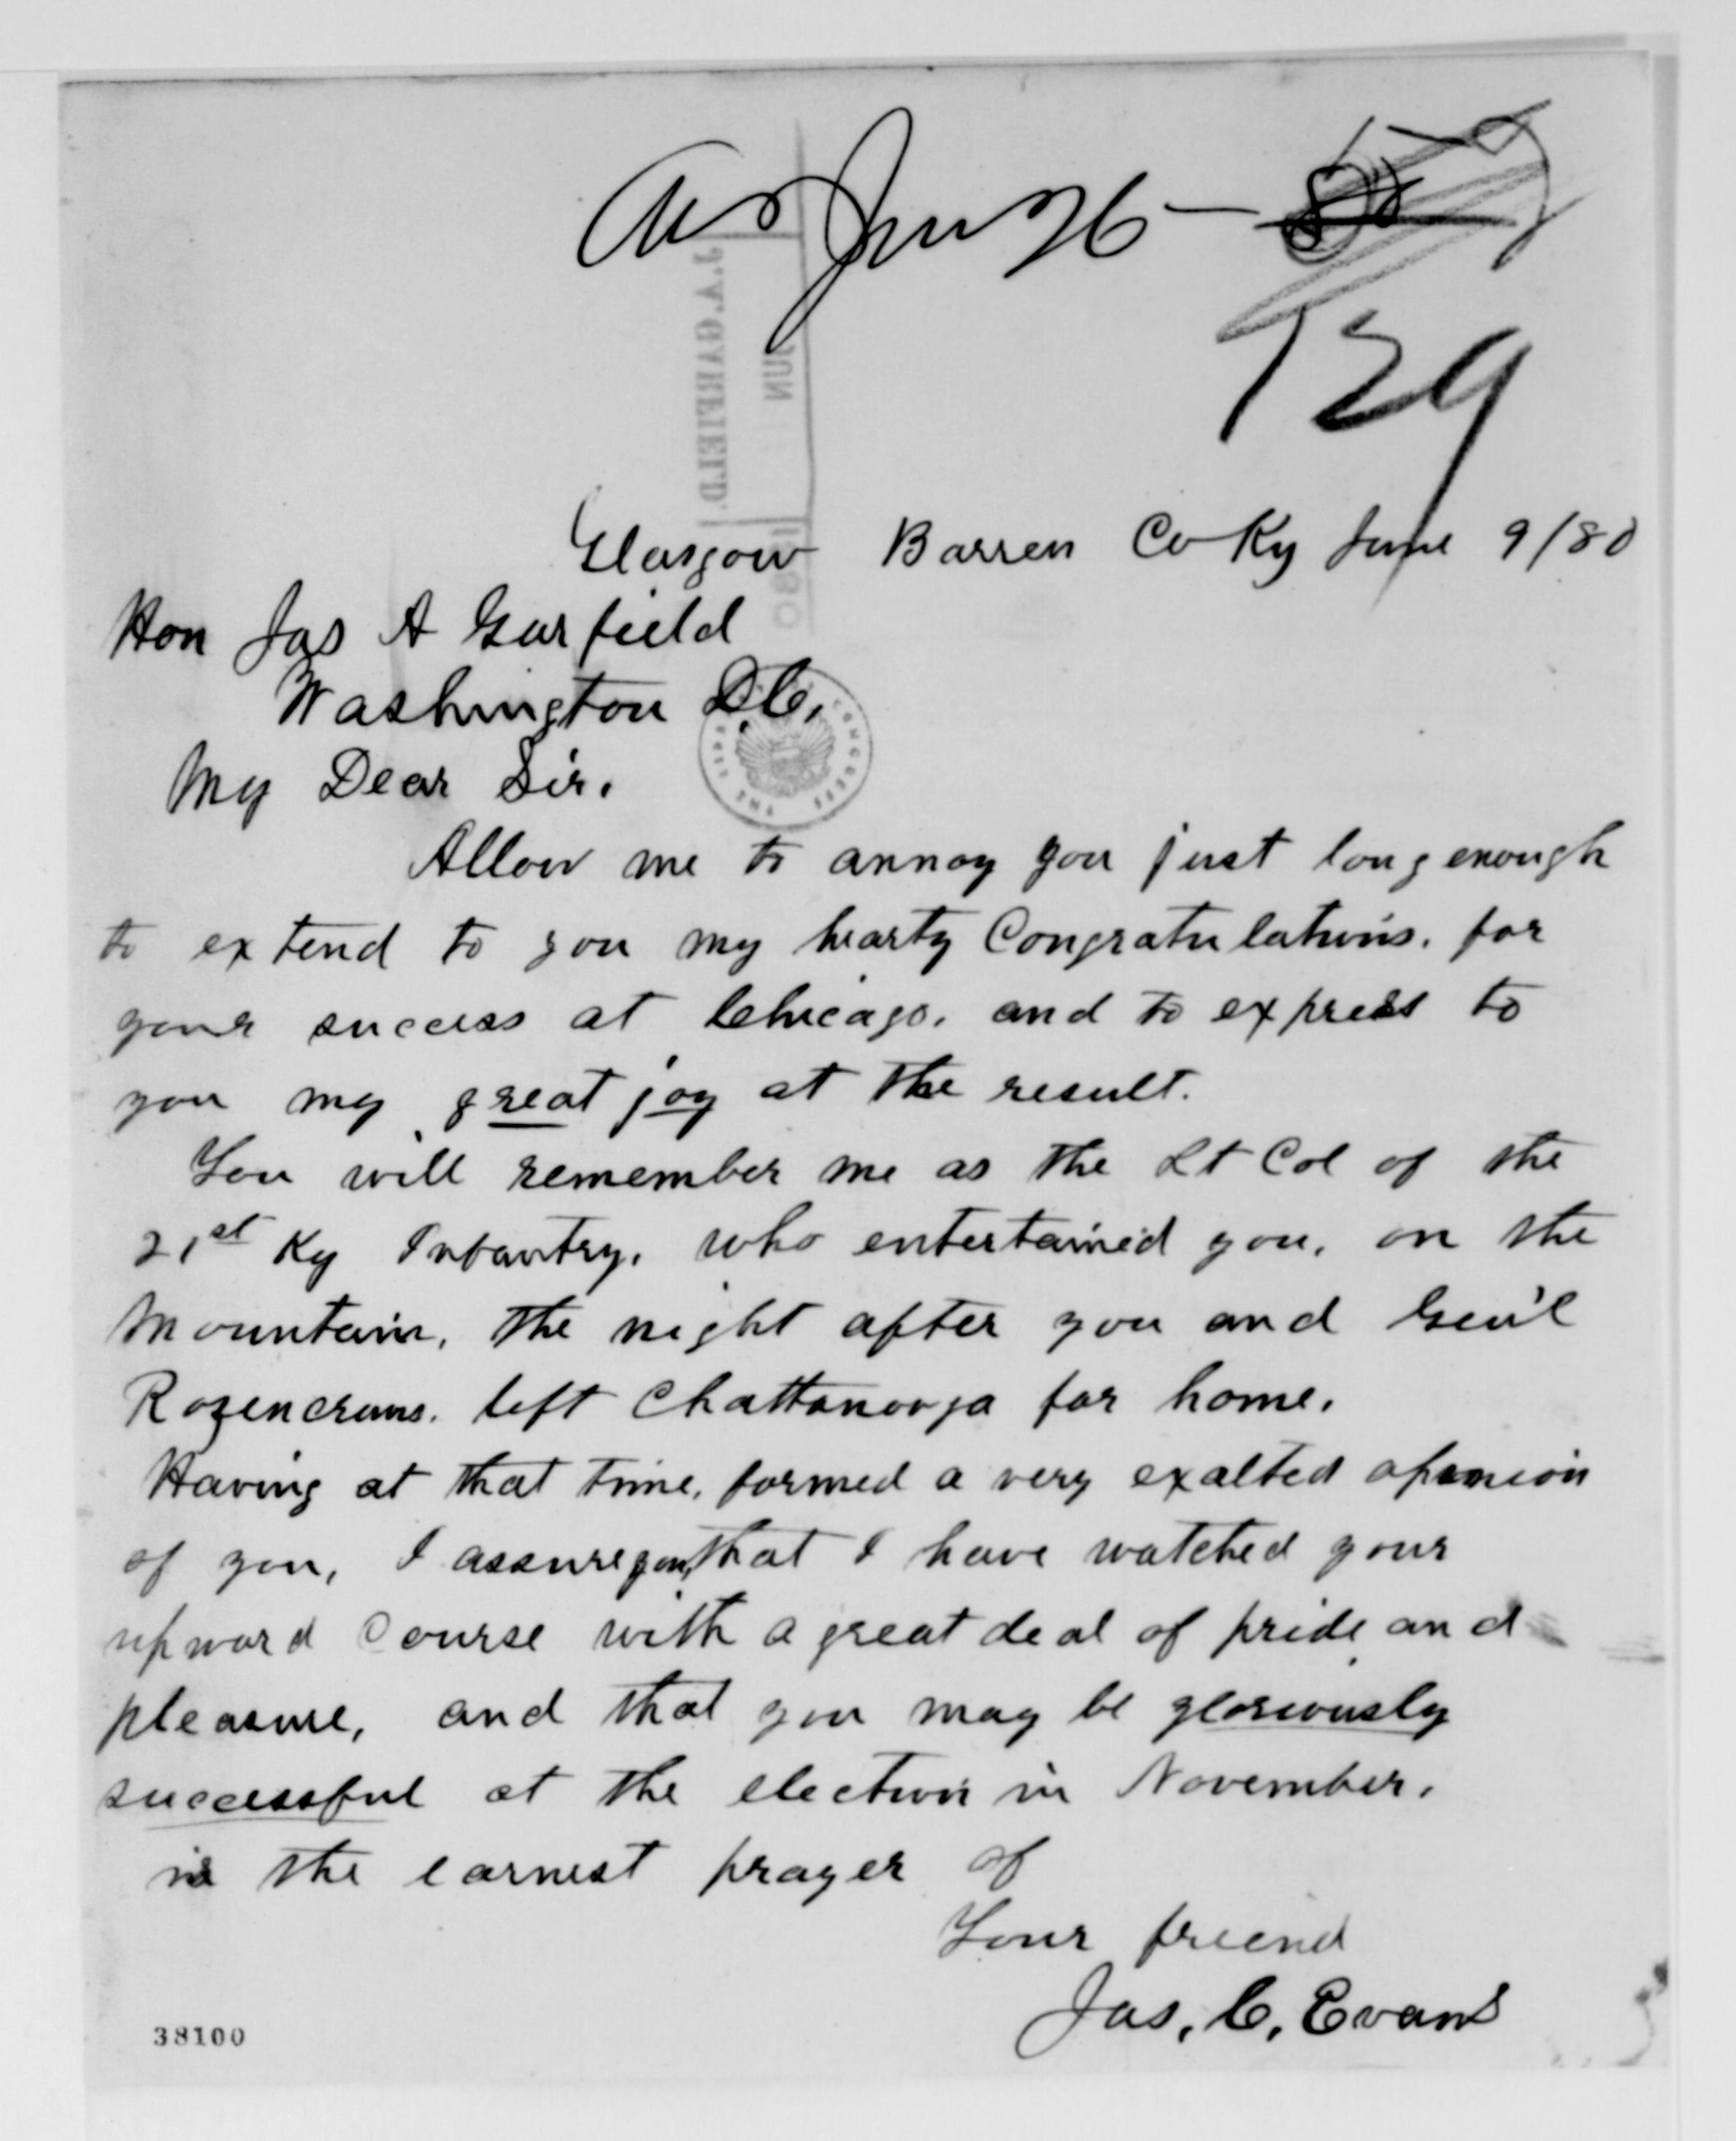 Ans Jun 26 — 80
729
J.A. GARFIELD.
JUN
1880
Glasgow Barren Co Ky June 9/80
Hon Jas A Garfield
Washington D.C.
My Dear Sir.
Allow me to annoy you just long enough
to extend to you my hearty Congratulations. for
your success at Chicago. and to express to
you my great joy at the result.
You will remember me as the Lt Col of the
21st Ky Infantry. who entertained you, on the
Mountain, the night after you and Gen'l
Rozencrans. left Chattanooga for home.
Having at that time, formed a very exalted opinion
of you, I assure you, that I have watched your
upward Course with a great deal of pride and
pleasure, and that you may be gloriously
successful at the election in November.
is the earnest prayer of
Your friend
Jas. C. Evans
38100